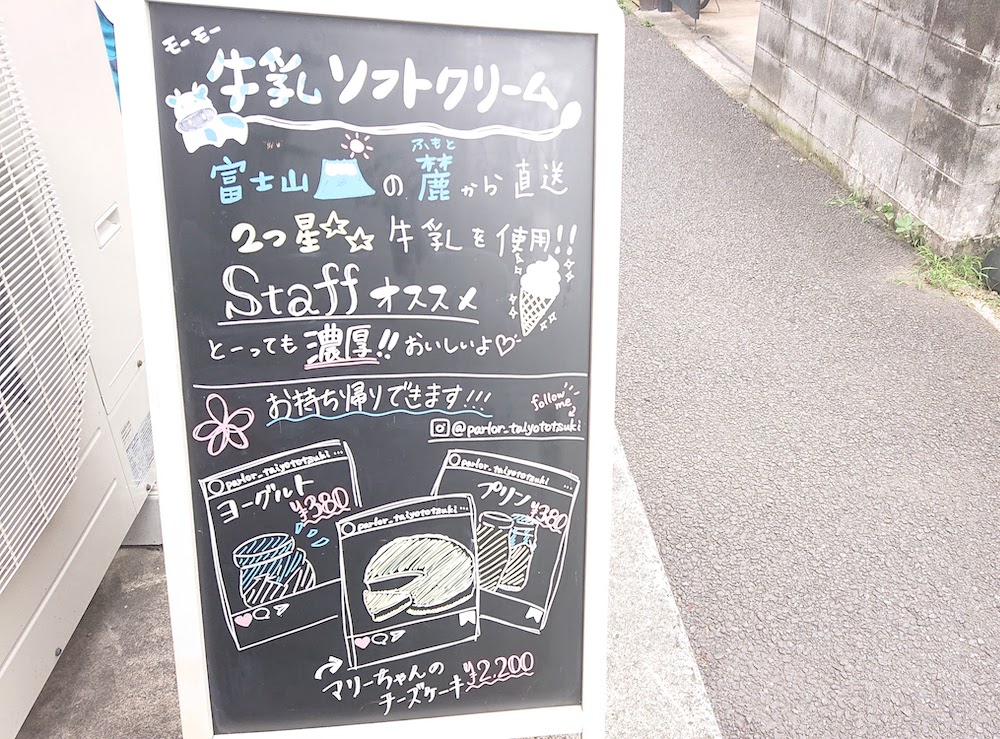 モーモー
牛乳ソフトクリーム
ふもと
富士山の麓から直送
2つ星☆☆牛乳を使用!!
Staffオススメ
とーっても濃厚!!おいしいよ♡
お持ち帰りできます!!!
follow me
@parlor_taiyototsuki
parlor_taiyototsuki
ヨーグルト
¥380
parlor_taiyototsuki
parlor_taiyototsuki
プリン
¥380
マリーちゃんの
チーズケーキ ¥2,200